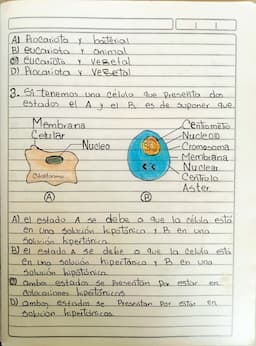 A) Procariota y bacterial
B) eucariota y animal
C) eucariota y vegetal
D) Procariota y vegetal
3. Si tenemos una célula que presenta dos
estados el A y el B es de suponer que
Membrana
Celular
Nucleo
Citoplasma
A
Centrometo
Nucleolo
Cromosoma
Membrana
Nuclear
Centriolo
Aster
B
A) el estado A se debe a que la célula está
en una solución hipotónica y B en una
solución hipertónica.
B) el estado A se debe a que la celula está
en una solución hipertónica y B en una
solución hipotónica
C) ambos estados se presentan por estar en
soluciones hipertónicos
D) ambos estados se presentan por estar en
solución hipertónicos.